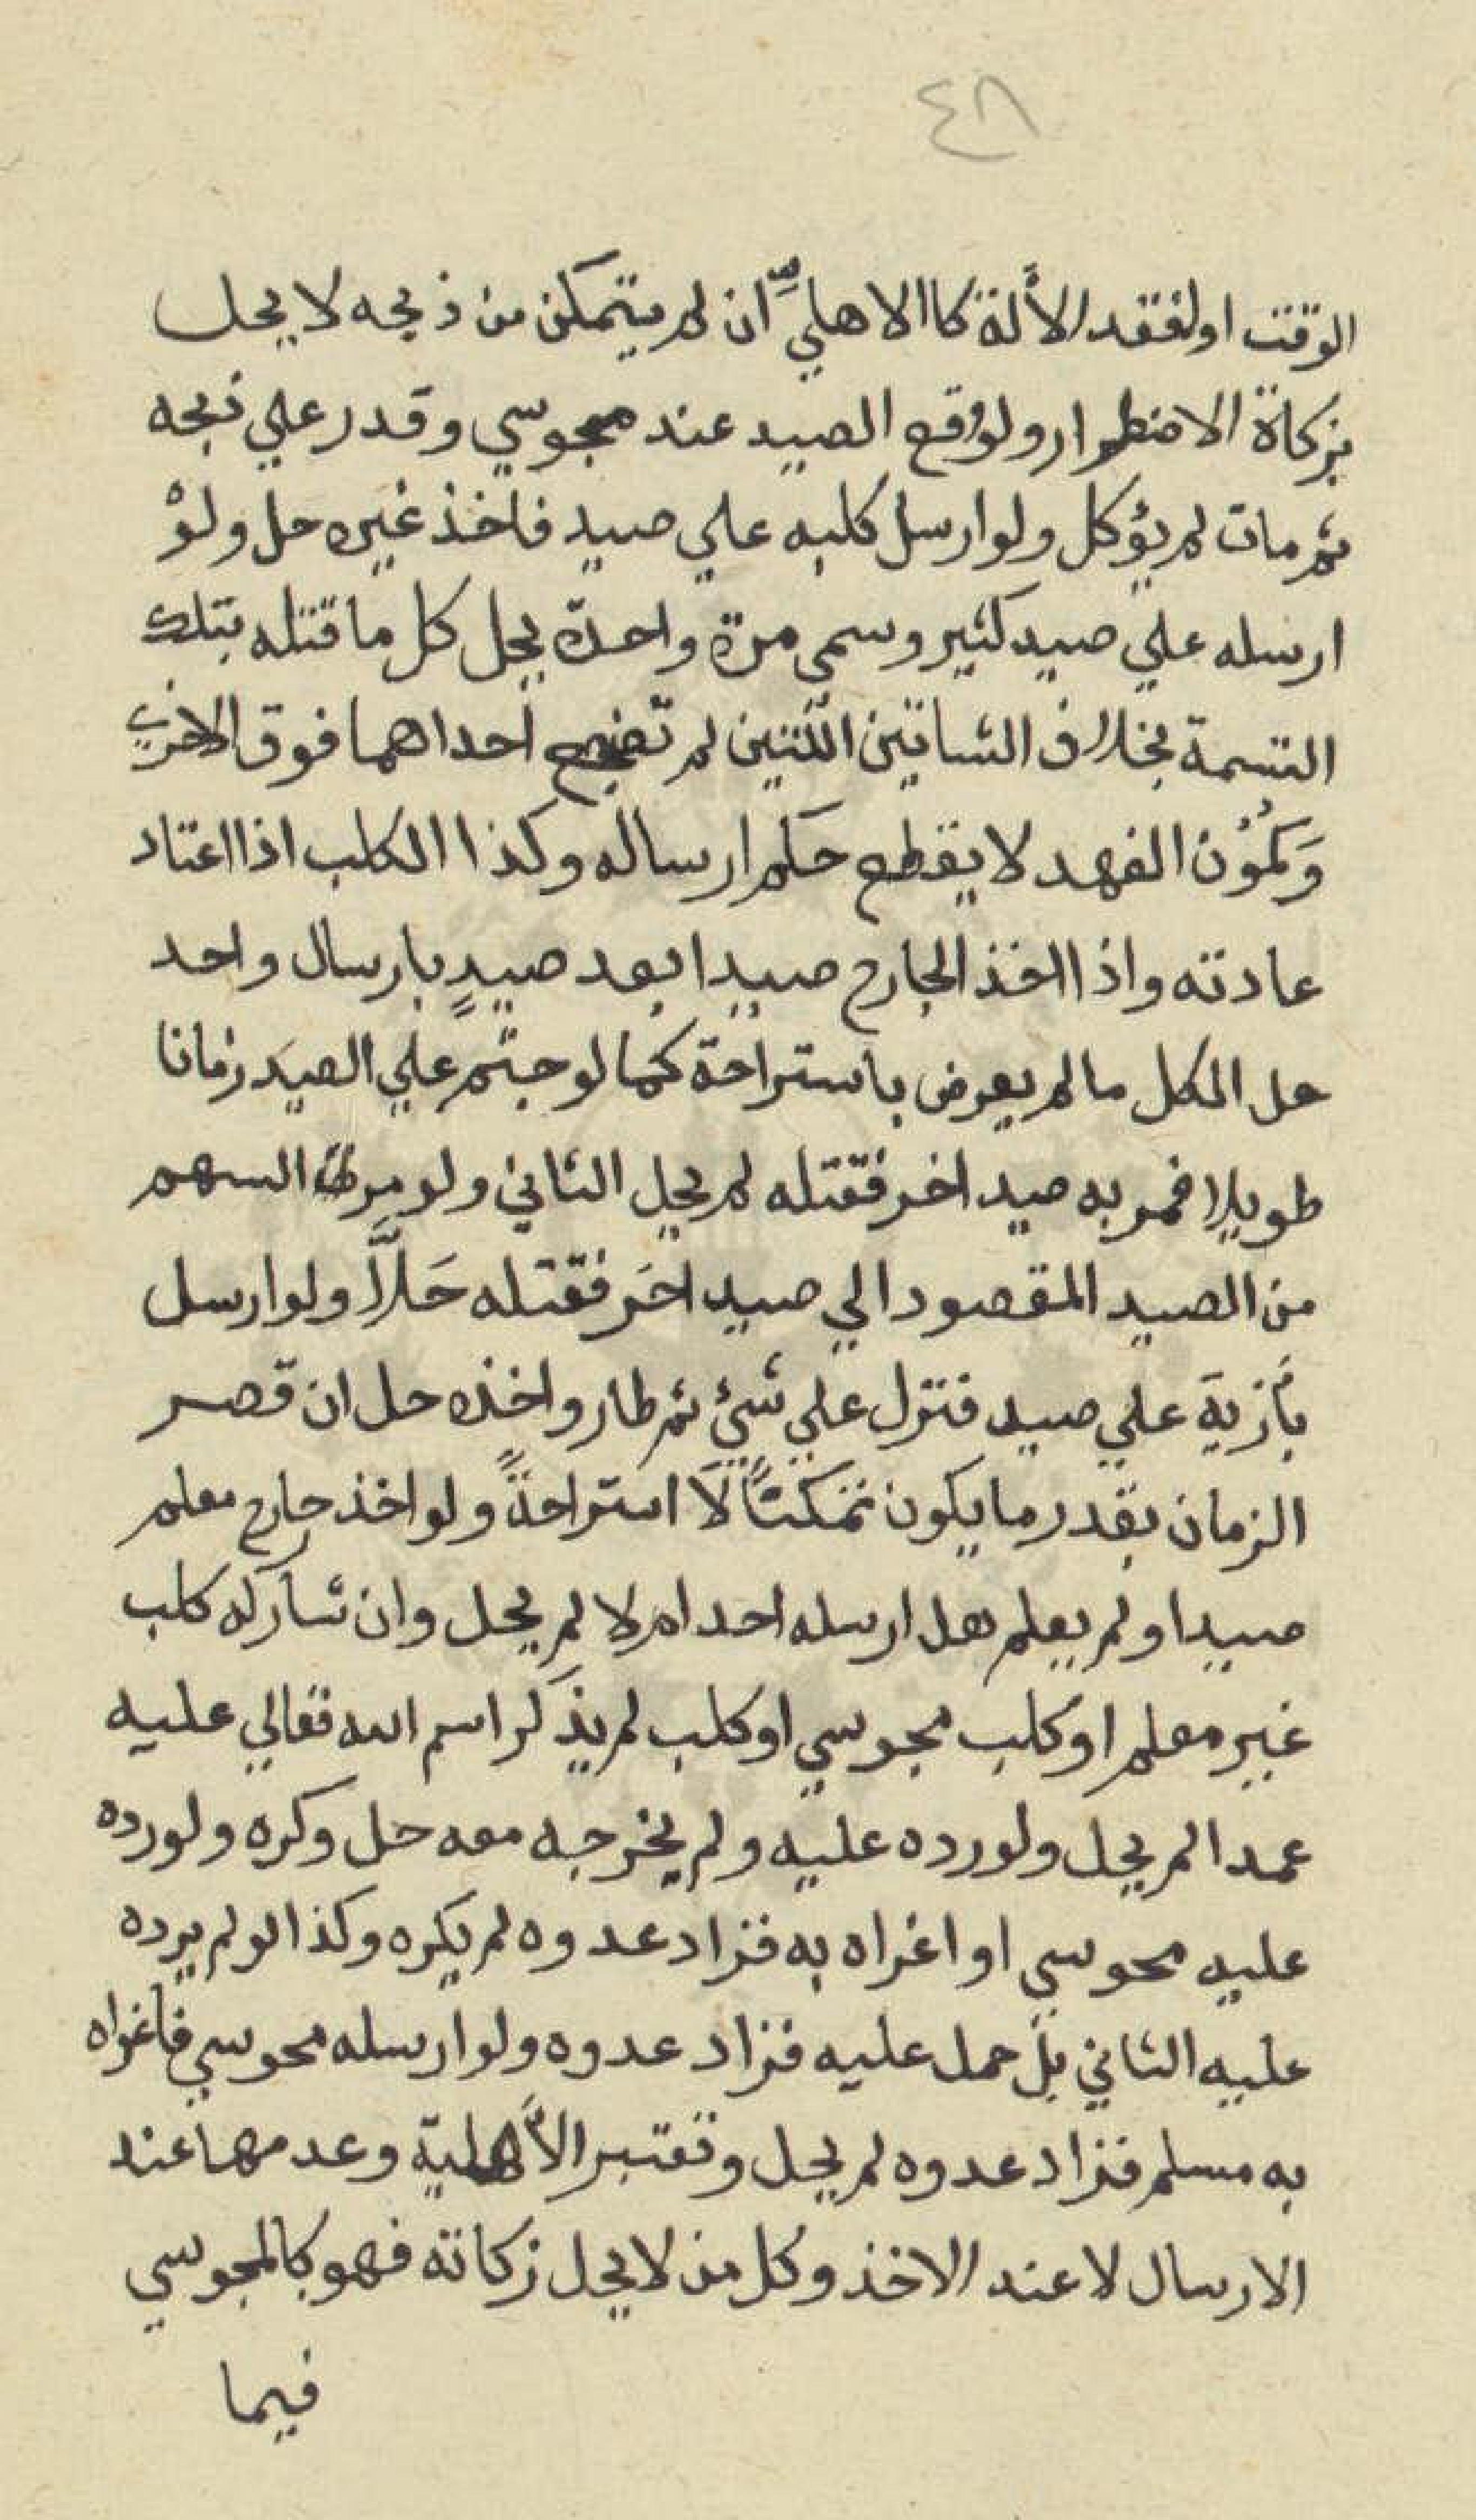 ٤٨
الوقت او لفقد الألة كاالاهليِّ ان لم يتمكن من ذبحه لا يحل
بزكاة الاضطرار ولو وقع الصيد عند مجوسي وقدر علي ذبحه
ثم مات لم يؤكل ولو ارسل كلبه علي صيد فاخذ غيره حل ولوْ
ارسله علي صيد كثير وسمي مرة واحدة يحل كل ما قتله بتلك
التسمة بخلاف الشاتين اللتين لم تضجع احداهما فوق الاخري
وَكمُوْن الفهد لا يقطع حكم ارساله وكذا الكلب اذا اعتاد
عادته واذا اخذ الجارح صيدا بعد صيدٍ بارسال واحد
حل الكل ما لم يعرض باستراحة كما لو جثم علي الصيد زمانا
طويلا فمر به صيد اخر فقتله لم يحل الثاني ولو مرق السهم
من الصيد المقصود الي صيد اخَر فقتله حَلاَّ ولو ارسل
بأزيه علي صيد فنزل علي شيءٍ ثم طار واخذه حل ان قصر
الزمان بقدر ما يكون تمكثاً لَا استراحةً ولو اخذ جارح معلم
صيدا ولم يعلم هل ارسله احد ام لا لم يحل وان شاركه كلب
غير معلم او كلب مجوسي او كلب لم يذكر اسم الله تعالي عليه
عمدا لم يحل ولو رده عليه ولم يخرجه معه حل وكره ولو رده
عليه مجوسي او اغراه به فزاد عدوه لم يكره وكذا لو لم يرده
عليه الثاني بل حمل عليه فزاد عدوه ولو ارسله مجوسي فاغراه
به مسلم فزاد عدوه لم يحل وتعتبر الأهلية وعدمها عند
الارسال لا عند الاخذ وكل من لا يحل زكاته فهو كالمجوسي
فيما